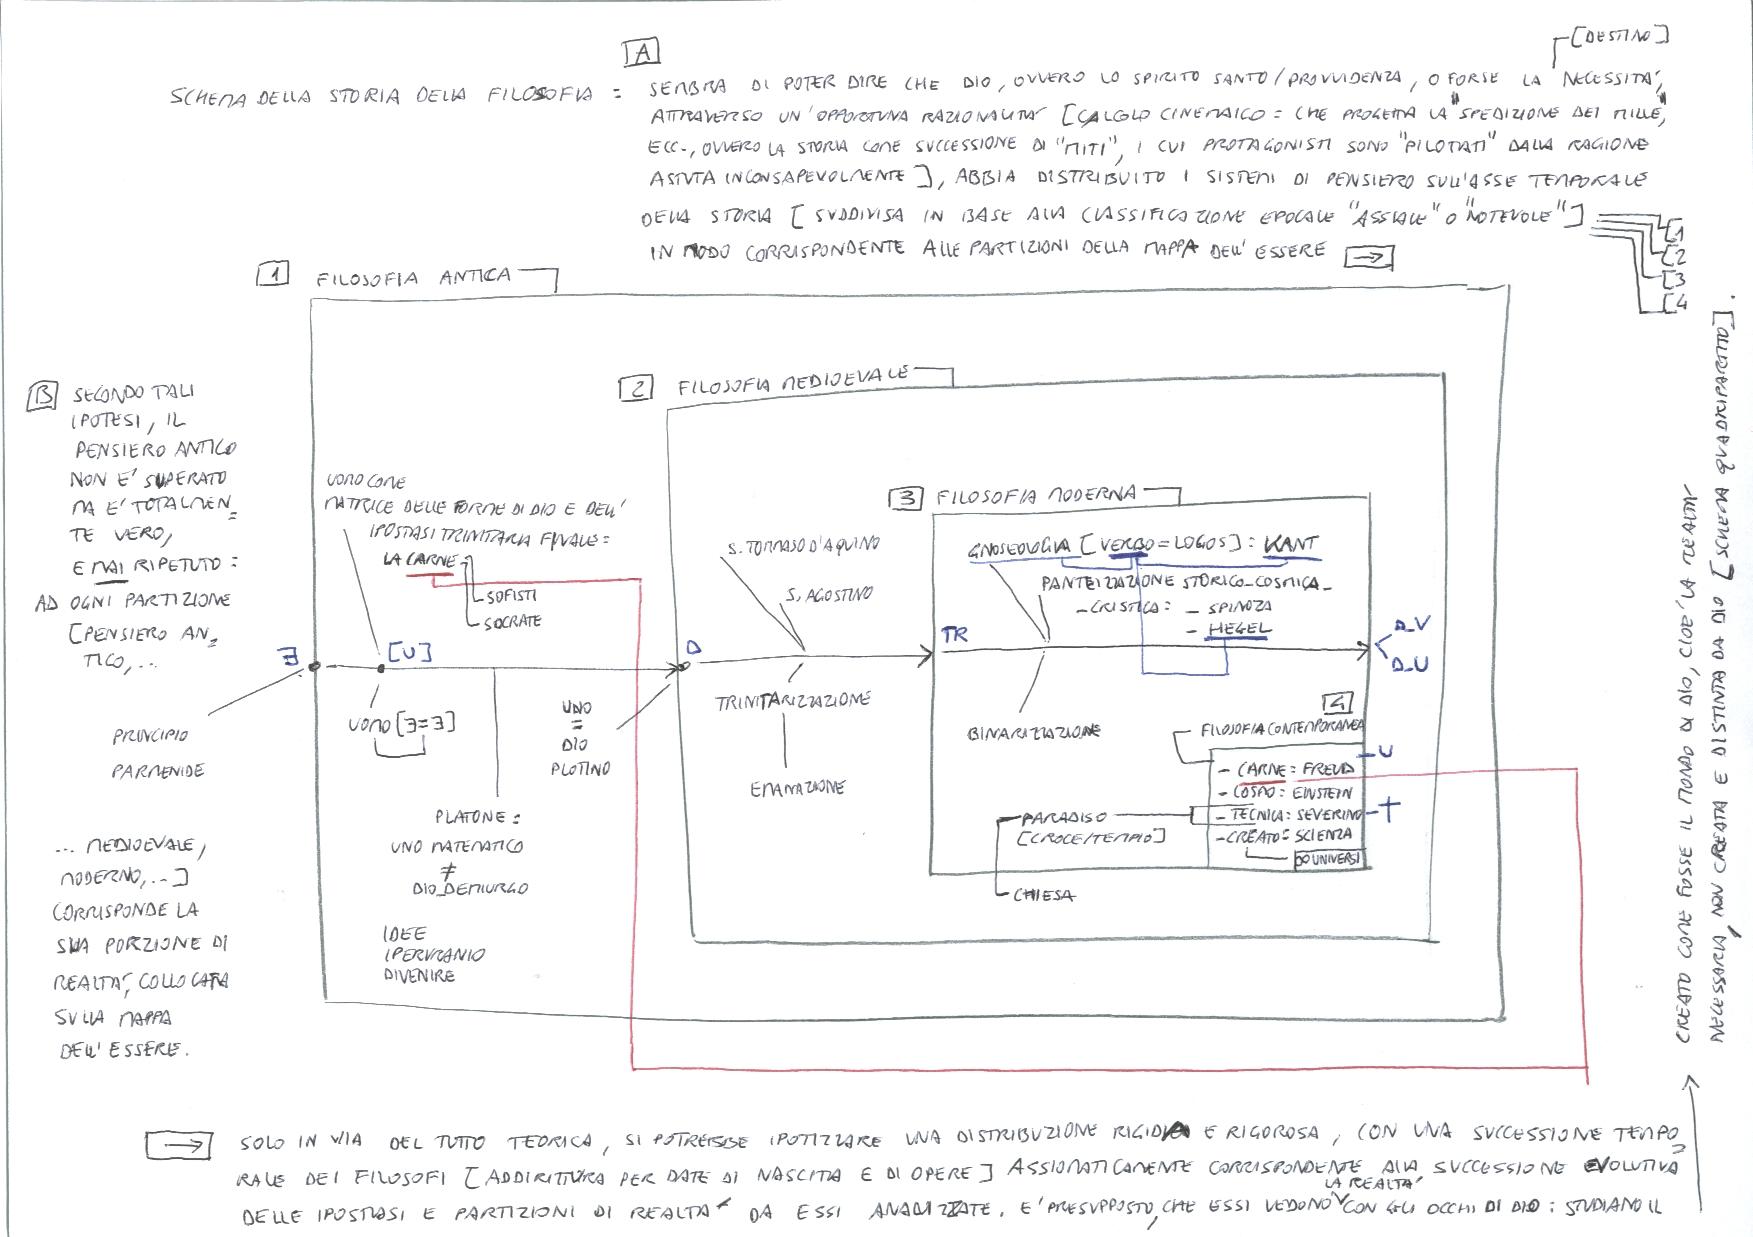 [DESTINO]
A
SCHEMA DELLA STORIA DELLA FILOSOFIA = SEMBRA DI POTER DIRE CHE DIO, OVVERO LO SPIRITO SANTO/PROVVIDENZA, O FORSE LA NECESSITA',
ATTRAVERSO UN'OPPORTUNA RAZIONALITA' [CALCOLO CINEMAICO = CHE PROGETTA LA "SPEDIZIONE DEI MILLE",
ECC., OVVERO LA STORIA COME SUCCESSIONE DI "MITI", I CUI PROTAGONISTI SONO "PILOTATI" DALLA RAGIONE
ASTUTA INCONSAPEVOLMENTE], ABBIA DISTRIBUITO I SISTEMI DI PENSIERO SULL'ASSE TEMPORALE
DELLA STORIA [SUDDIVISA IN BASE ALLA CLASSIFICAZIONE EPOCALE "ASSIALE" O "NOTEVOLE"]
[1
[2
[3
[4
IN MODO CORRISPONDENTE ALLE PARTIZIONI DELLA MAPPA DELL'ESSERE →
1 FILOSOFIA ANTICA
2 FILOSOFIA MEDIOEVALE
3 FILOSOFIA MODERNA
B SECONDO TALI
IPOTESI, IL
PENSIERO ANTICO
NON E' SUPERATO
MA E' TOTALMEN=
TE VERO,
E MAI RIPETUTO:
AD OGNI PARTIZIONE
[PENSIERO AN=
TICO, ...
PRINCIPIO
PARMENIDE
... MEDIOEVALE,
MODERNO, ...]
CORRISPONDE LA
SUA PORZIONE DI
REALTA', COLLOCATA
SULLA MAPPA
DELL'ESSERE.
UOMO COME
MATRICE DELLE FORME DI DIO E DELL'
IPOSTASI TRINITARIA FINALE =
LA CARNE
SOFISTI
SOCRATE
∃
[U]
UOMO [∃=∃]
PLATONE =
UNO MATEMATICO
≠
DIO_DEMIURGO
IDEE
IPERURANIO
DIVENIRE
UNO
=
DIO
PLOTINO
D
S. TOMMASO D'AQUINO
S. AGOSTINO
TRINITARIZZAZIONE
EMANAZIONE
TR
GNOSEOLOGIA [VERBO = LOGOS] : KANT
PANTEIZZAZIONE STORICO_COSMICA_
_CRISTICA : - SPINOZA
- HEGEL
BINARIZZAZIONE
D_V
D_U
4
FILOSOFIA CONTEMPORANEA
- CARNE : FREUD
- COSMO : EINSTEIN
- TECNICA : SEVERINO
- CREATO = SCIENZA
∞ UNIVERSI
U
+
PARADISO
[CROCE/TEMPIO]
CHIESA
→ SOLO IN VIA DEL TUTTO TEORICA, SI POTREBBE IPOTIZZARE UNA DISTRIBUZIONE RIGIDA E RIGOROSA, CON UNA SUCCESSIONE TEMPO=
RALE DEI FILOSOFI [ADDIRITTURA PER DATE DI NASCITA E DI OPERE] ASSIOMATICAMENTE CORRISPONDENTE ALLA SUCCESSIONE EVOLUTIVA
DELLE IPOSTASI E PARTIZIONI DI REALTA' DA ESSI ANALIZZATE. E' PRESUPPOSTO, CHE ESSI VEDONO LA REALTA' CON GLI OCCHI DI DIO : STUDIANO IL
CREATO COME FOSSE IL MONDO DI DIO, CIOE' LA REALTA'
NECESSARIA, NON CREATA E DISTINTA DA DIO [SCHEMA QUADRIPARTITO].